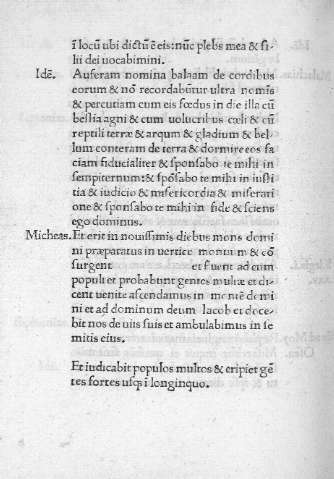 ĩ locũ ubi dictũ ẽ eis: nũc plebs mea & fi-
lii dei uocabimini.
Idẽ. Auferam nomina balaam de cordibus
eorum & nõ recordabũtur ultra nomĩs
& percutiam cum eis fœdus in die illa cũ
bestia agni & cum uolucribus cæli & cũ
reptili terræ & arqum & gladium & bel
lum conteram de terra & dormire eos fa
ciam fiducialiter & sponsabo te mihi in
sempiternum: & spõsabo te mihi in iusti
tia & iudicio & misericordia & miserari
one & sponsabo te mihi in fide & sciens
ego dominus.
Micheas. Et erit in nouissimis diebus mons domi
ni præparatus in uertice montium & cõ
surgent et fluent ad eum
populi et probabunt gentes multæ et di
cent uenite ascendamus in montẽ domi
ni et ad dominum deum Iacob et doce-
bit nos de uiis suis et ambulabimus in se
mitis eius.
Et iudicabit populos multos & eripiet gẽ
tes fortes usq; ĩ longinquo.